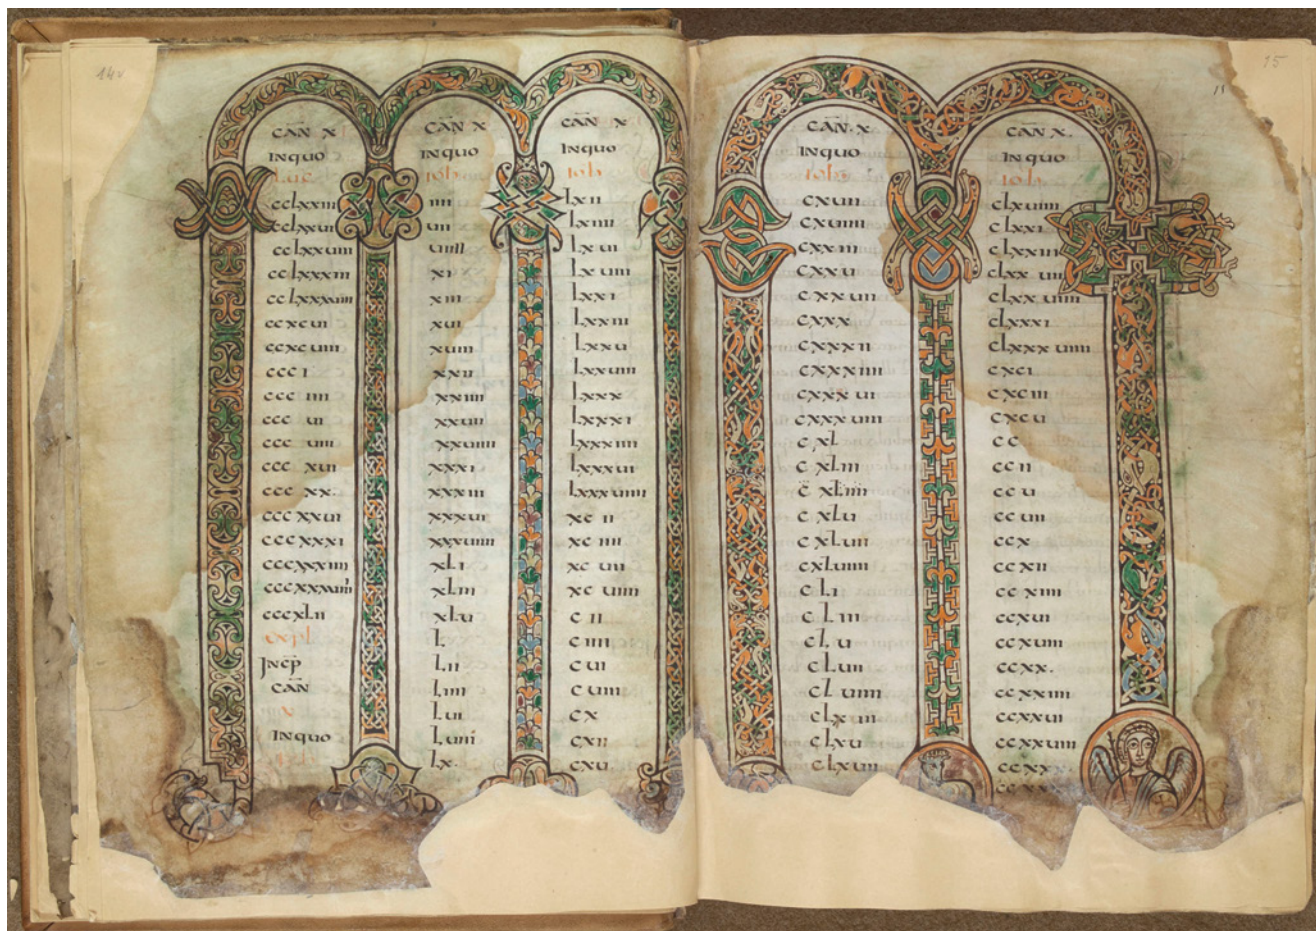 14v
CAN X
INQUO
Luc
cclxxiii
cclxxui
cclxxuiiii
cclxxxiii
cclxxxuiiii
ccxcui
ccxcuiiii
ccci
ccciiii
cccui
cccuiiii
cccxui
cccxx.
cccxxui
cccxxxi
cccxxxiiii
cccxxxuiiii
cccxlii
expl
Incp
CAN
X
INQUO
CAN X
INQUO
ioh
iiii
uii
uiiii
xi
xiii
xui
xuiii
xxii
xxiiii
xxuii
xxuiiii
xxxi
xxxiii
xxxui
xxxuiiii
xli
xliii
xlu
l.
lii
liiii
lui
luiii
lx.
CAN X
INQUO
ioh
lxii
lxiiii
lxui
lxuiii
lxxi
lxxiii
lxxu
lxxuiii
lxxx
lxxxi
lxxxiiii
lxxxui
lxxxuiiii
xcii
xciiii
xcuii
xcuiiii
cii
ciiii
cui
cuiii
cx
cxii
cxu
15
CAN. X
INQUO
ioh
cxuii
cxuiiii
cxxiii
cxxu
cxxuii
cxxx
cxxxii
cxxxiiii
cxxxui
cxxxuiiii
cxl
cxliii
cxliiii
cxlu
cxluii
cxluiiii
cli
cliii
clu
cluii
cluiiii
clxiii
clxu
clxuii
CAN X.
INQUO
ioh
clxuiiii
clxxi
clxxiii
clxxuii
clxxuiiii
clxxxi
clxxxuiiii
cxci
cxciii
cxcu
cc
ccii
ccu
ccuii
ccx
ccxii
ccxiiii
ccxui
ccxuiii
ccxx.
ccxxiiii
ccxxui
ccxxuiiii